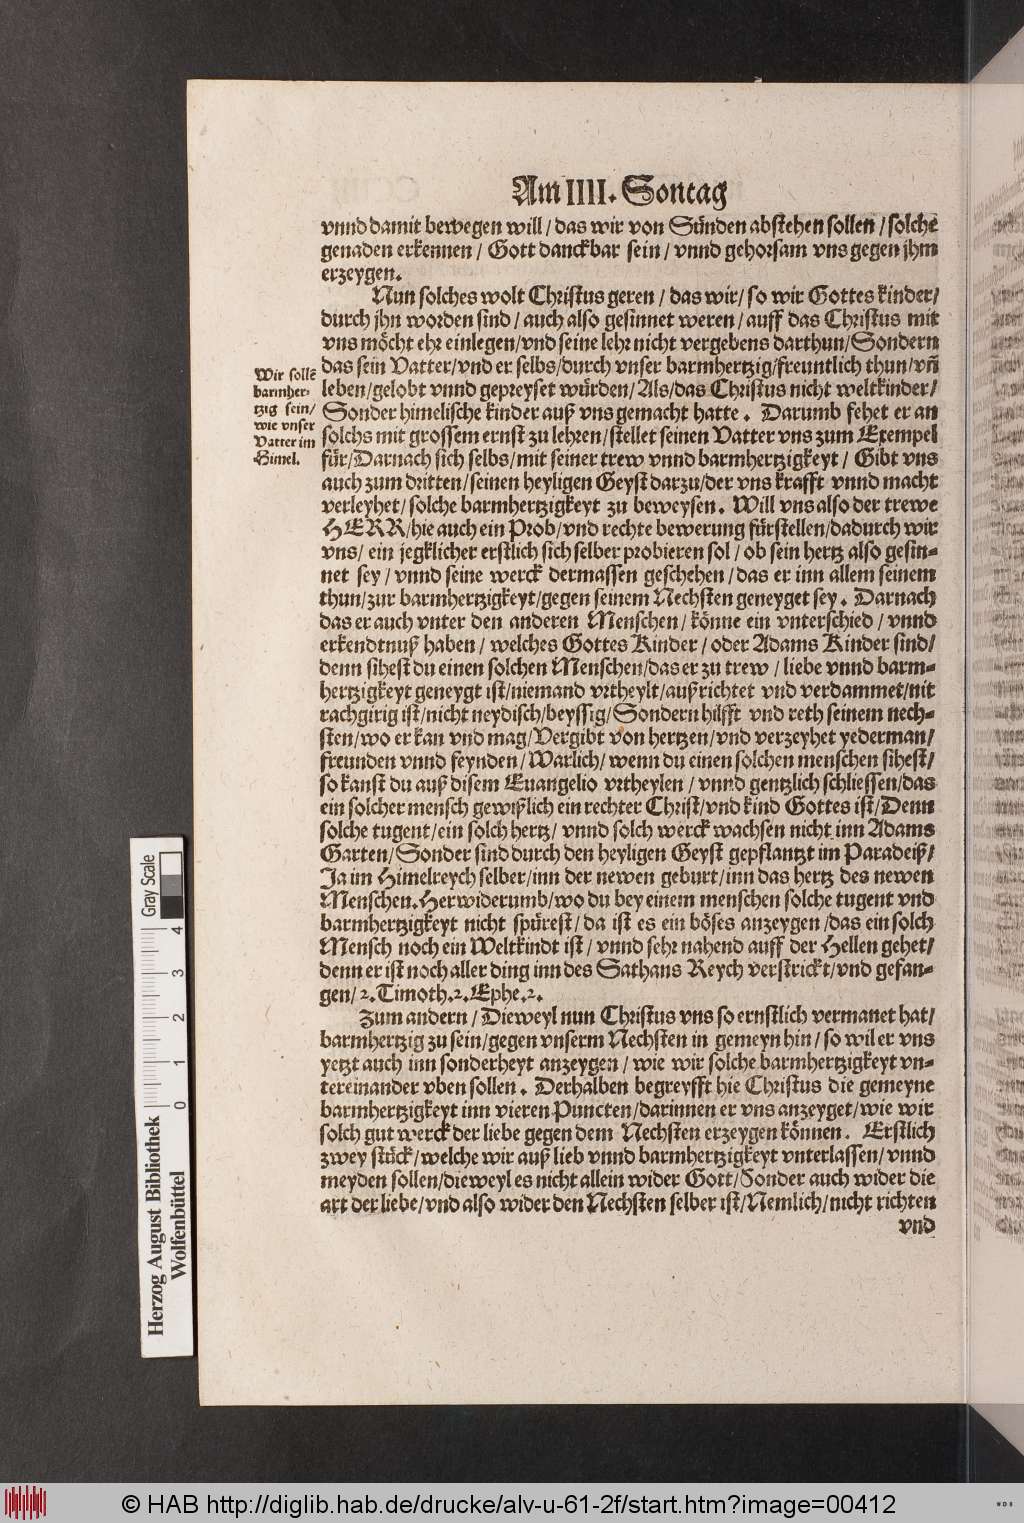 Am IIII. Sontag
vnnd damit bewegen will / das wir von Sünden abstehen sollen / solche
genaden erkennen / Gott danckbar sein / vnnd gehorsam vns gegen jhm
erzeygen.
Nun solches wolt Christus geren / das wir / so wir Gottes kinder /
durch jhn worden sind / auch also gesinnet weren / auff das Christus mit
vns möcht ehr einlegen / vnd seine lehr nicht vergebens darthun / Sondern
das sein Vatter / vnd er selbs / durch vnser barmhertzig / freuntlich thun / vñ
leben / gelobt vnnd gepreyset würden / Als / das Christus nicht weltkinder /
Sonder himelische kinder auß vns gemacht hatte. Darumb fehet er an
solchs mit grossem ernst zu lehren / stellet seinen Vatter vns zum Exempel
für / Darnach sich selbs / mit seiner trew vnnd barmhertzigkeyt / Gibt vns
auch zum dritten / seinen heyligen Geyst darzu / der vns krafft vnnd macht
verleyhet / solche barmhertzigkeyt zu beweysen. Will vns also der trewe
HERR / hie auch ein Prob / vnd rechte bewerung fürstellen / dadurch wir
vns / ein jegklicher erstlich sich selber probieren sol / ob sein hertz also gesin-
net sey / vnnd seine werck dermassen geschehen / das er inn allem seinem
thun / zur barmhertzigkeyt / gegen seinem Nechsten geneyget sey. Darnach
das er auch vnter den anderen Menschen / könne ein vnterschied / vnnd
erkendtnuß haben / welches Gottes Kinder / oder Adams Kinder sind /
denn sihest du einen solchen Menschen / das er zu trew / liebe vnnd barm-
hertzigkeyt geneygt ist / niemand vrtheylt / außrichtet vnd verdammet / nit
rachgirig ist / nicht neydisch / beyssig / Sondern hilfft vnd reth seinem nech-
sten / wo er kan vnd mag / Vergibt von hertzen / vnd verzeyhet yederman /
freunden vnnd feynden / Warlich / wenn du einen solchen menschen sihest /
so kanst du auß disem Euangelio vrtheylen / vnnd gentzlich schliessen / das
ein solcher mensch gewißlich ein rechter Christ / vnd kind Gottes ist / Denn
solche tugent / ein solch hertz / vnnd solch werck wachsen nicht inn Adams
Garten / Sonder sind durch den heyligen Geyst gepflantzt im Paradeiß /
Ja im Himelreych selber / inn der newen geburt / inn das hertz des newen
Menschen. Herwiderumb / wo du bey einem menschen solche tugent vnd
barmhertzigkeyt nicht spürest / da ist es ein böses anzeygen / das ein solch
Mensch noch ein Weltkindt ist / vnnd sehr nahend auff der Hellen gehet /
denn er ist noch aller ding inn des Sathans Reych verstrickt / vnd gefan-
gen / 2. Timoth. 2. Ephe. 2.
Zum andern / Dieweyl nun Christus vns so ernstlich vermanet hat /
barmhertzig zu sein / gegen vnserm Nechsten in gemeyn hin / so wil er vns
yetzt auch inn sonderheyt anzeygen / wie wir solche barmhertzigkeyt vn-
tereinander vben sollen. Derhalben begreyfft hie Christus die gemeyne
barmhertzigkeyt inn vieren Puncten / darinnen er vns anzeyget / wie wir
solch gut werck der liebe gegen dem Nechsten erzeygen können. Erstlich
zwey stück / welche wir auß lieb vnnd barmhertzigkeyt vnterlassen / vnnd
meyden sollen / dieweyl es nicht allein wider Gott / Sonder auch wider die
art der liebe / vnd also wider den Nechsten selber ist / Nemlich / nicht richten
vnd
Wir sollẽ
barmher-
tzig sein /
wie vnser
Vatter im
Himel.
Gray Scale
0 1 2 3 4
Herzog August Bibliothek
Wolfenbüttel
© HAB http://diglib.hab.de/drucke/alv-u-61-2f/start.htm?image=00412